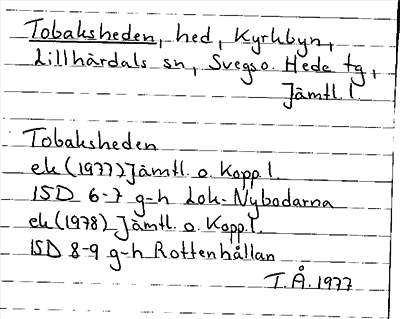 Tobaksheden, hed, Kyrkbyn,
Lillhärdals sn, Svegs o. Hede tg,
Jämtl. l.
Tobaksheden
ek (1977) Jämtl. o. Kopp. l.
15D 6-7 g-h Lok-Nybodarna
ek (1978) Jämtl. o. Kopp. l.
15D 8-9 g-h Rottenhållan
T.Å. 1977